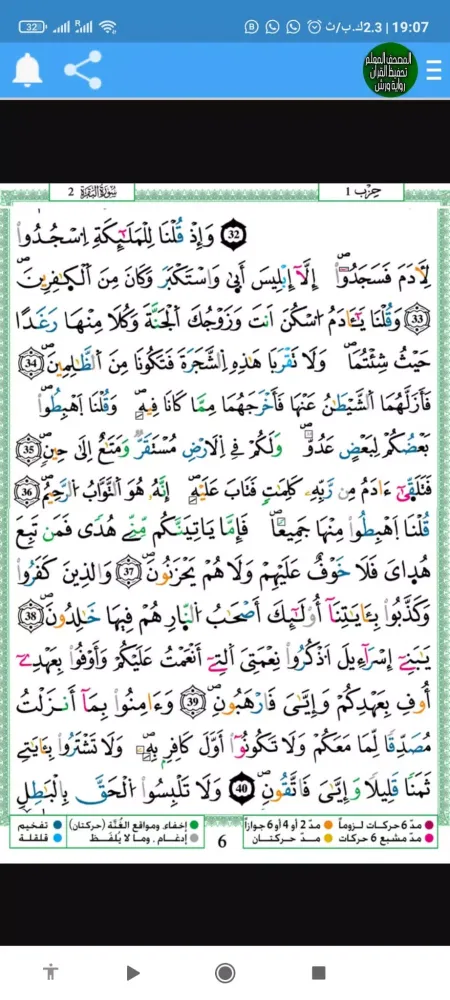 32 R 2.3ك.ب/ث 19:07
المصحف المعلم
تحفيظ القرآن
رواية ورش
2 سُورَةُ البَقَرَة حِزْب 1
32 وَإِذْ قُلْنَا لِلْمَلَٰٓئِكَةِ اِ۟سْجُدُواْ
لِأٓدَمَ فَسَجَدُوٓاْ إِلَّآ إِبْلِيسَ أَب۪يٰ وَاسْتَكْبَرَ وَكَانَ مِنَ اَ۬لْكٰ۪فِرِينَۖ
33 وَقُلْنَا يَٰٓـَٔادَمُ اُ۟سْكُنَ اَنتَ وَزَوْجُكَ اَ۬لْجَنَّةَ وَكُلَا مِنْهَا رَغَداً
حَيْثُ شِئْتُمَاۖ وَلَا تَقْرَبَا هَٰذِهِ اِ۬لشَّجَرَةَ فَتَكُونَا مِنَ اَ۬لظَّٰلِمِينَۖ 34
فَأَزَلَّهُمَا اَ۬لشَّيْطَٰنُ عَنْهَا فَأَخْرَجَهُمَا مِمَّا كَانَا فِيهِۖ وَقُلْنَا اَ۪هْبِطُواْ
بَعْضُكُمْ لِبَعْضٍ عَدُوّٞۖ وَلَكُمْ فِے اِ۬لَارْضِ مُسْتَقَرّٞ وَمَتَٰعٌ إِلَىٰ حِينٖۖ 35
فَتَلَقّ۪ىٰٓ ءَادَمُ مِن رَّبِّهِۦ كَلِمَٰتٖ فَتَابَ عَلَيْهِۖ إِنَّهُۥ هُوَ اَ۬لتَّوَّابُ اُ۬لرَّحِيمُۖ 36
قُلْنَا اَ۪هْبِطُواْ مِنْهَا جَمِيعاٗۖ فَإِمَّا يَاتِيَنَّكُم مِّنِّے هُديٗ فَمَن تَبِعَ
هُد۪ايَ فَلَا خَوْفٌ عَلَيْهِمْ وَلَا هُمْ يَحْزَنُونَۖ 37 وَالذِينَ كَفَرُواْ
وَكَذَّبُواْ بِـَٔايَٰتِنَآ أُوْلَٰٓئِكَ أَصْحَٰبُ اُ۬لنّ۪ارِ هُمْ فِيهَا خَٰلِدُونَۖ 38
يَٰبَنِےٓ إِسْرَآءِيلَ اَ۟ذْكُرُواْ نِعْمَتِيَ اَ۬لتِےٓ أَنْعَمْتُ عَلَيْكُمْ وَأَوْفُواْ بِعَهْدِےٓ
أُوفِ بِعَهْدِكُمْ وَإِيَّٰيَ فَارْهَبُونِۖ 39 وَءَامِنُواْ بِمَآ أَنزَلْتُ
مُصَدِّقاٗ لِّمَا مَعَكُمْ وَلَا تَكُونُوٓاْ أَوَّلَ كَافِرِۢ بِهِۦۖ وَلَا تَشْتَرُواْ بِـَٔايَٰتِے
ثَمَناٗ قَلِيلاٗ وَإِيَّٰيَ فَاتَّقُونِۖ 40 وَلَا تَلْبِسُواْ اُ۬لْحَقَّ بِالْبَٰطِلِ
مدّ 6 حركات لزوماً مدّ 2 أو 4 أو 6 جوازاً 6 إخفاء، ومواقع الغُنَّة (حركتان) تفخيم
مدّ مشبع 6 حركات مــدّ حركتــان إدغام ، وما لا يُلفَـظ قلقلة